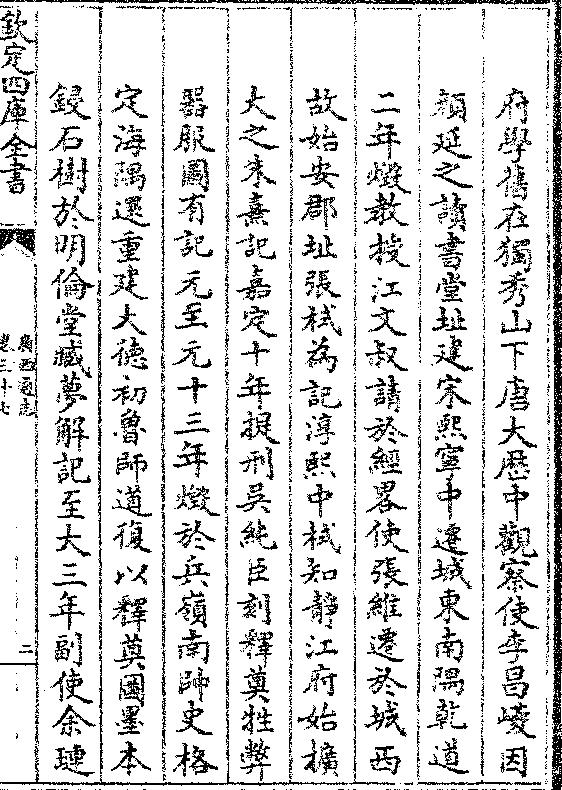 府學舊在獨秀山下唐大歴中觀察使李昌巙因
顔延之讀書堂址建宋熙寧中遷城東南隅乾道
二年燬教授江文叔請於經畧使張維遷於城西
故始安郡址張栻為記淳熙中栻知靜江府始擴
大之朱熹記嘉定十年提刑吳純臣刻釋奠牲幣
器服圖有記元至元十三年燬於兵嶺南帥史格
定海隅還重建大德初魯師道復以釋奠圖墨本
鋟石樹於明倫堂臧夢解記至大三年副使余璉
欽定四庫全書
廣西通志
卷三十七
二